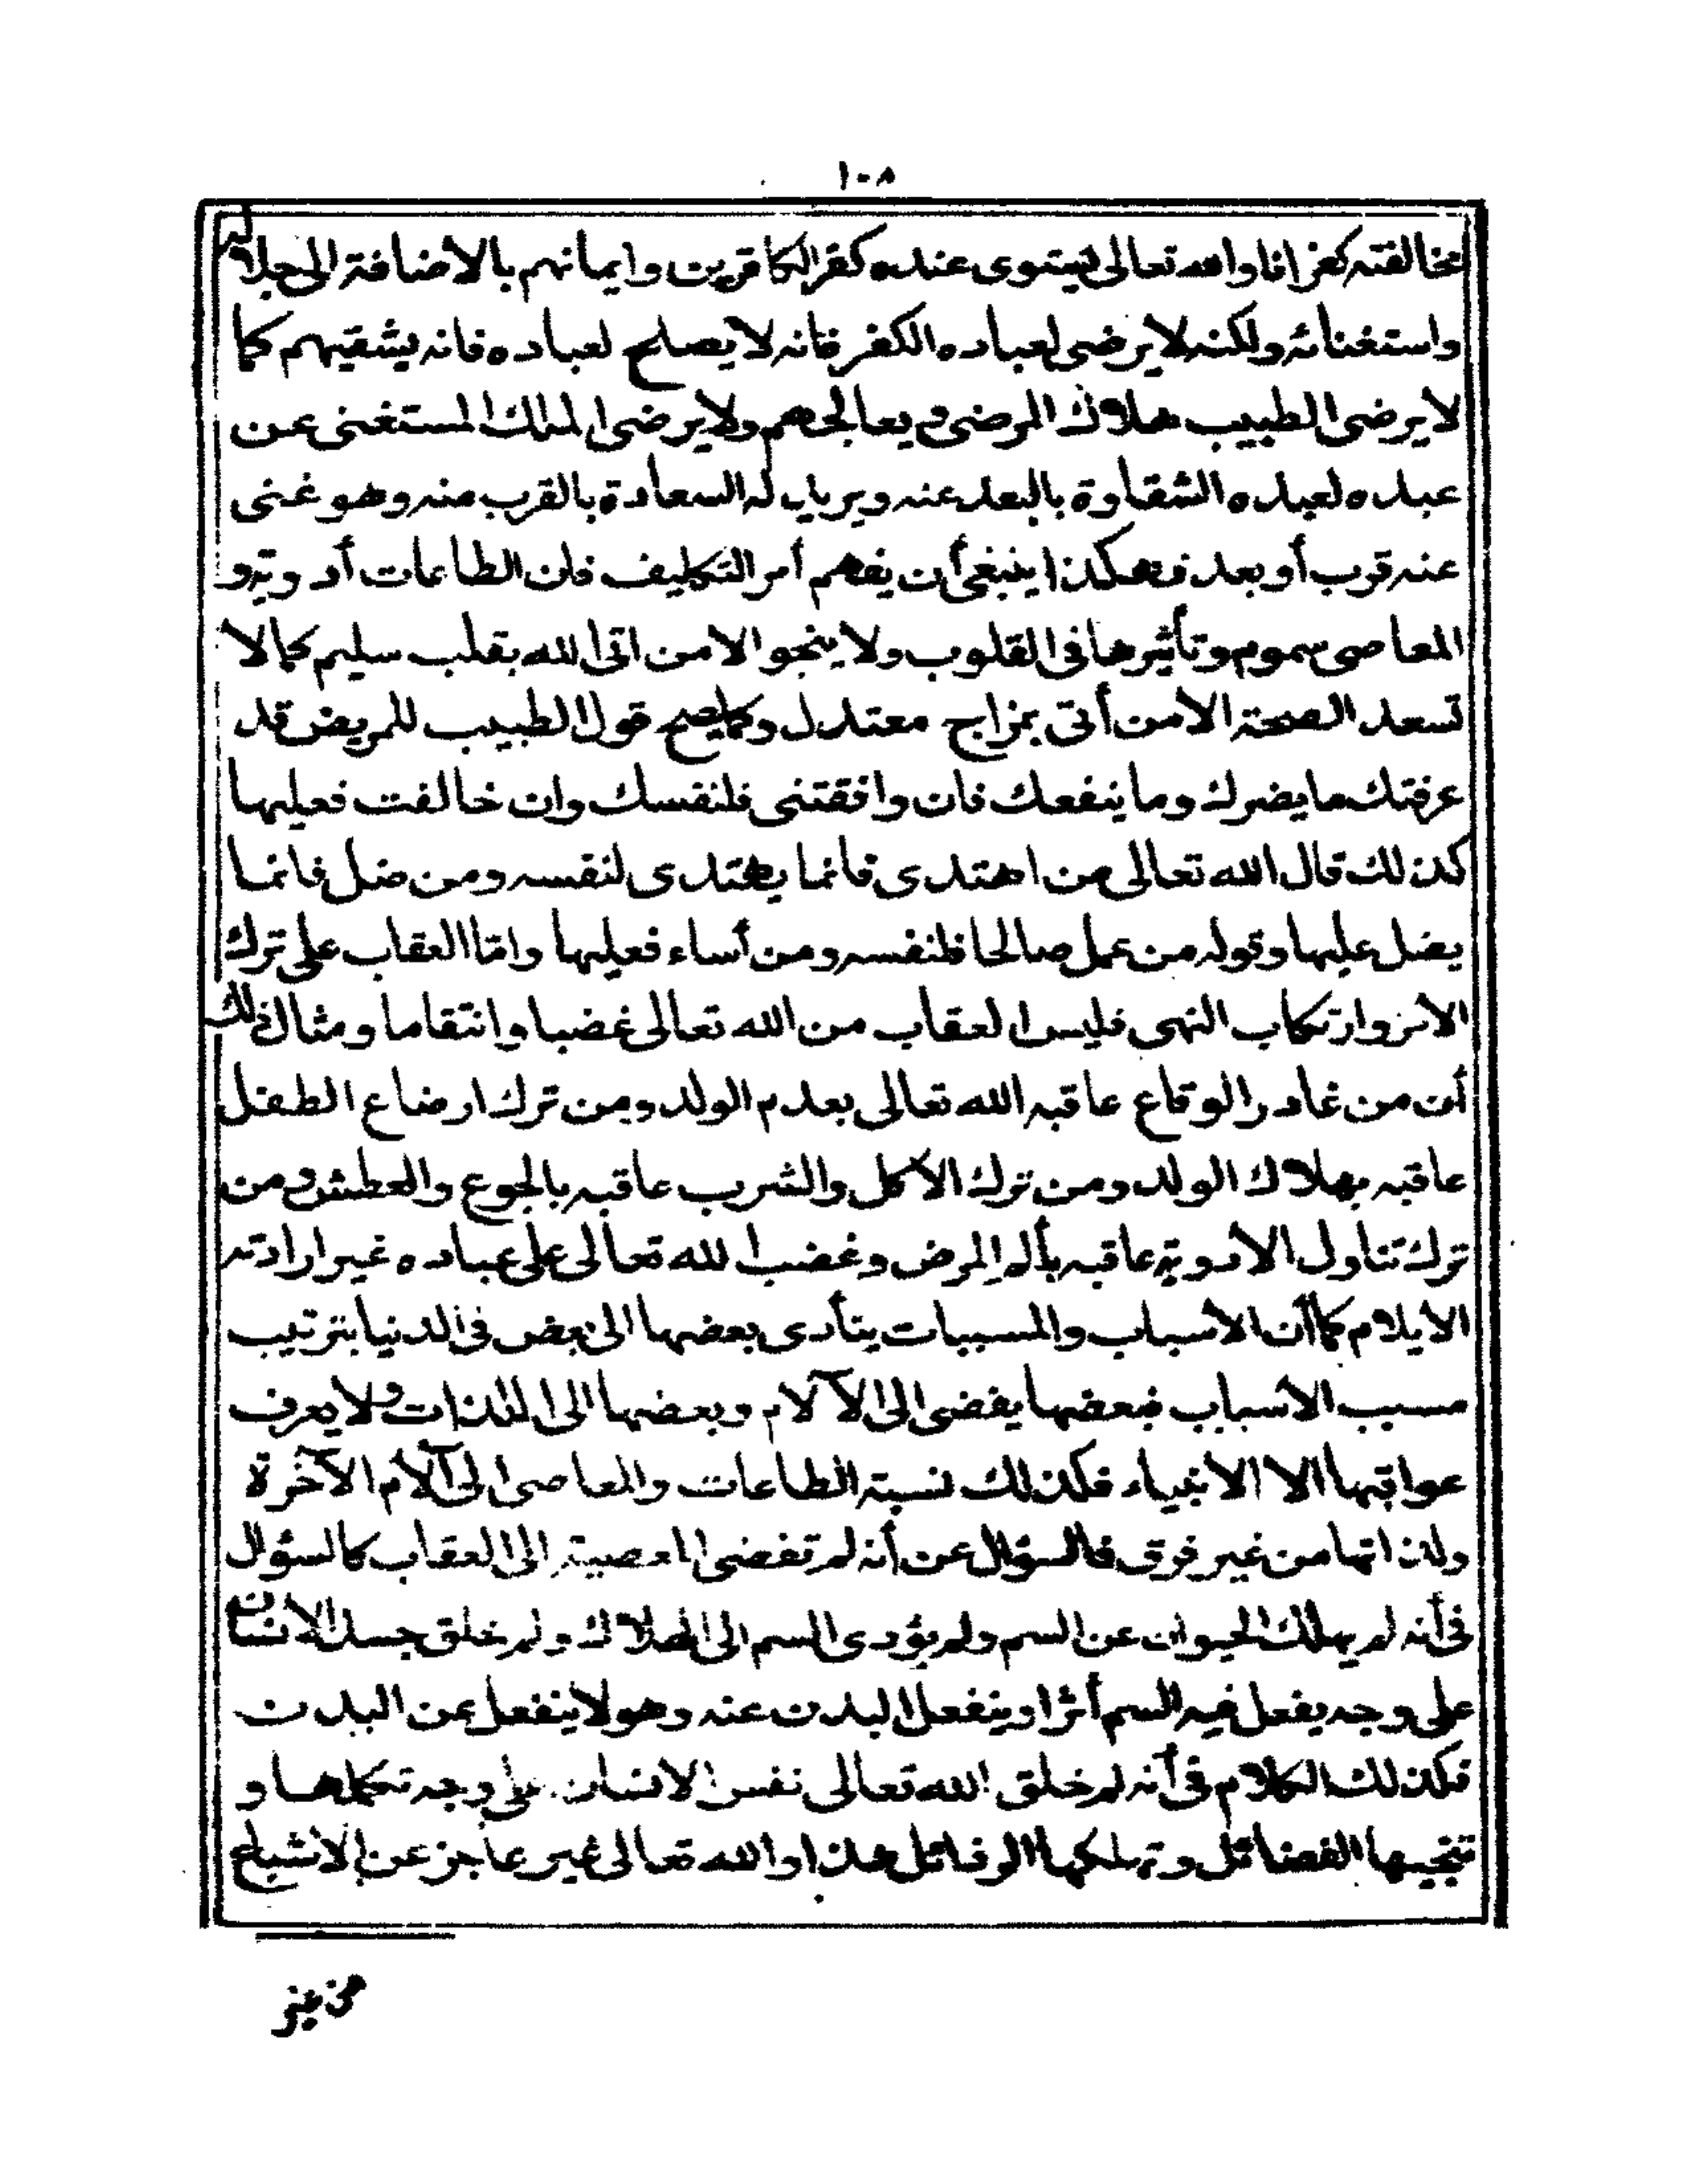 ١٠٨
لمخالفته كفرانا والله تعالى يستوى عنده كفر الكافرين وايمانهم بالاضافة الى جلاله
واستغنائه ولكنه لا يرضى لعباده الكفر فانه لا يصلح لعباده فانه يشقيهم كما
لا يرضى الطبيب هلاك المرضى ويعالجهم ولا يرضى الملك المستغنى عن
عبده لعبده الشقاوة بالبعد عنه ويريد له السعادة بالقرب منه وهو غنى
عنه قرب أو بعد فهكذا ينبغى أن يفهم أمر التكليف فان الطاعات أدوية و
المعاصى سموم وتأثيرها فى القلوب ولا ينجو الا من اتى الله بقلب سليم كما لا
تسعد الصحة الا من أتى بمزاج معتدل وكما يصح قول الطبيب للمريض قد
عرفتك ما يضرك وما ينفعك فان وافقتنى فلنفسك وان خالفت فعليها
كذلك قال الله تعالى من اهتدى فانما يهتدى لنفسه ومن ضل فانما
يضل عليها وقوله من عمل صالحا فلنفسه ومن أساء فعليها وامّا العقاب على ترك
الامر وارتكاب النهى فليس العقاب من الله تعالى غضبا وانتقاما ومثال ذلك
أن من غادر الوقاع عاقبه الله تعالى بعدم الولد ومن ترك ارضاع الطفل
عاقبه بهلاك الولد ومن ترك الأكل والشرب عاقبه بالجوع والعطش ومن
ترك تناول الأدوية عاقبه بألم المرض وغضب الله تعالى على عباده غير ارادته
الايلام كما أن الأسباب والمسببات يتأدى بعضها الى بعض فى الدنيا بترتيب
مسبب الأسباب فبعضها يفضى الى الآلام وبعضها الى اللذات ولا يعرف
عواقبها الا الانبياء فكذلك نسبة الطاعات والمعاصى الى آلام الآخرة
ولذاتها من غير فرق فالسؤال عن أنه لم تفضى المعصية الى العقاب كالسؤال
فى أنه لم يهلك الحيوان عن السم ولم يؤدى السم الى الهلاك ولم خلق جسد الانسان
على وجه يفعل فيه السم أثرا وينفعل البدن عنه وهو لا ينفعل عن البدن
فكذلك الكلام فى أنه لم خلق الله تعالى نفس الانسان على وجه تكملها و
تنجيها الفضائل وتهلكها الرذائل هذا والله تعالى غير عاجز عن الاشباع
من غير